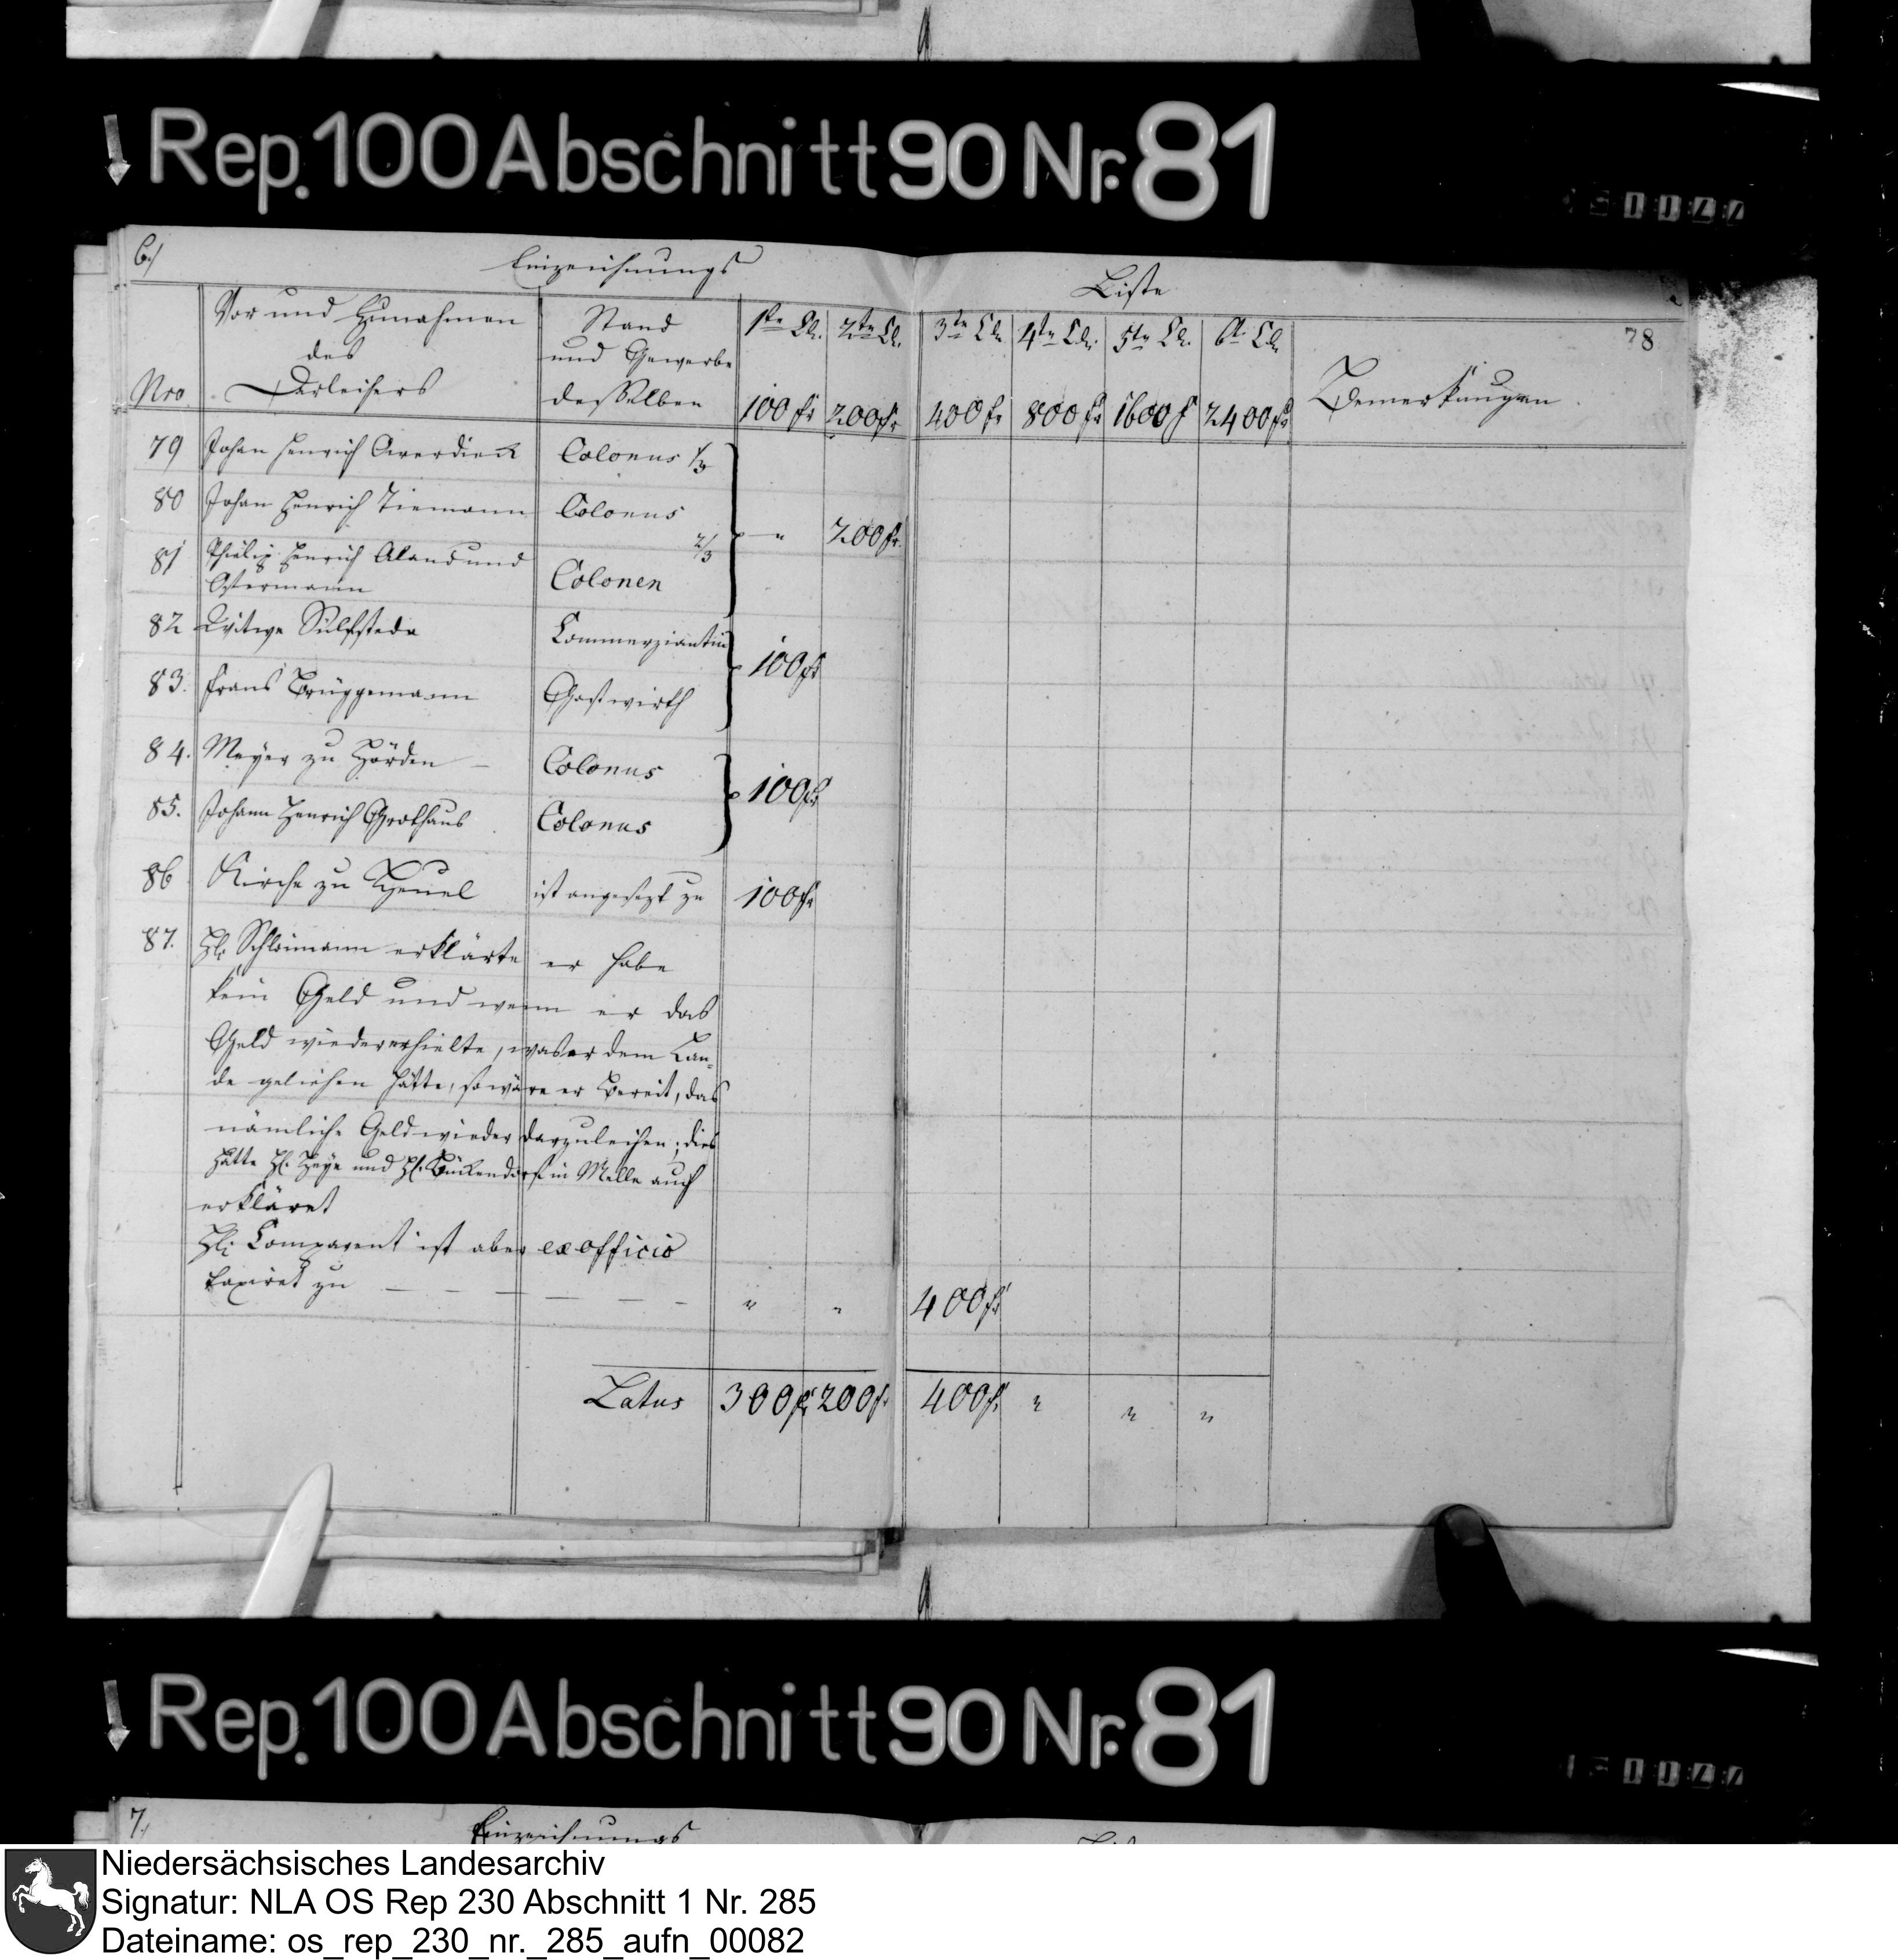 Rep. 100 Abschnitt 90 Nr. 81
6./
Einzeichnungs Liste
78
Nro Vor und Zunahmen des Darleihers Stand und Gewerbe desselben 1te Cl. 100 fr 2te Cl. 200 fr 3te Cl. 400 fr 4te Cl. 800 fr 5te Cl. 1600 f 6te Cl. 2400 fr Bemerkungen
79 Johan Henrich Averdieck Colonus 1/3
80 Johan Henrich Tiemann Colonus " 200 fr.
81 Philip Henrich Aland und 2/3
Ostermann Colonen
82 Witwe Sülfstede Commerziantin
100 fr
83. Frans Brüggemann Gastwirth
84. Meyer zu Hörden – Colonus
100 fr
85. Johann Henrich Grothaus Colonus
86 Kirche zu ist angesezt zu 100 fr
87. Hr. erklärte er habe
kein Geld und wenn er das
Geld wiedererhielte, was er dem Lan-
de geliehen hätte, so wäre er bereit, das
nämliche Geld wieder darzuleihen; dies
hätte Hr. Heye und Hr. in Melle auch
erkläret
Hr. Comparent ist aber ex officio
taxiret zu – – – – – – – " " 400 fr
Latus 300 fr 200 fr 400 fr " " "
Rep. 100 Abschnitt 90 Nr. 81
7./
Einzeichnungs
Niedersächsisches Landesarchiv
Signatur: NLA OS Rep 230 Abschnitt 1 Nr. 285
Dateiname: os_rep_230_nr._285_aufn_00082